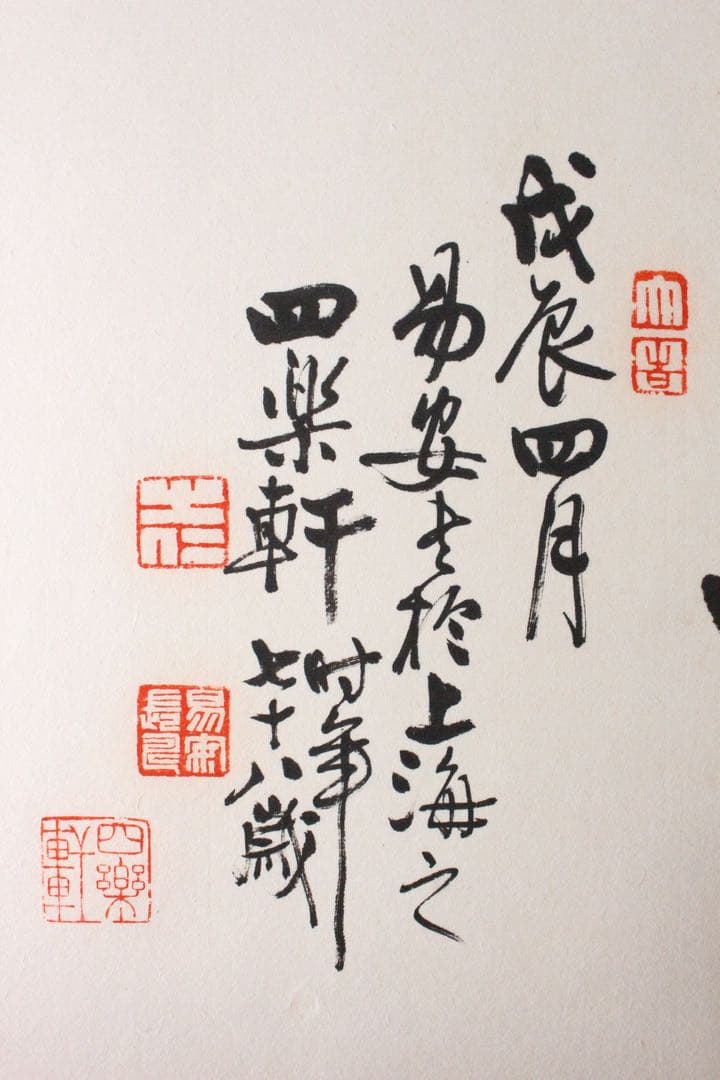 戊辰四月
易安書於上海之
四楽軒
时年
七十八歲
易安長
四樂軒